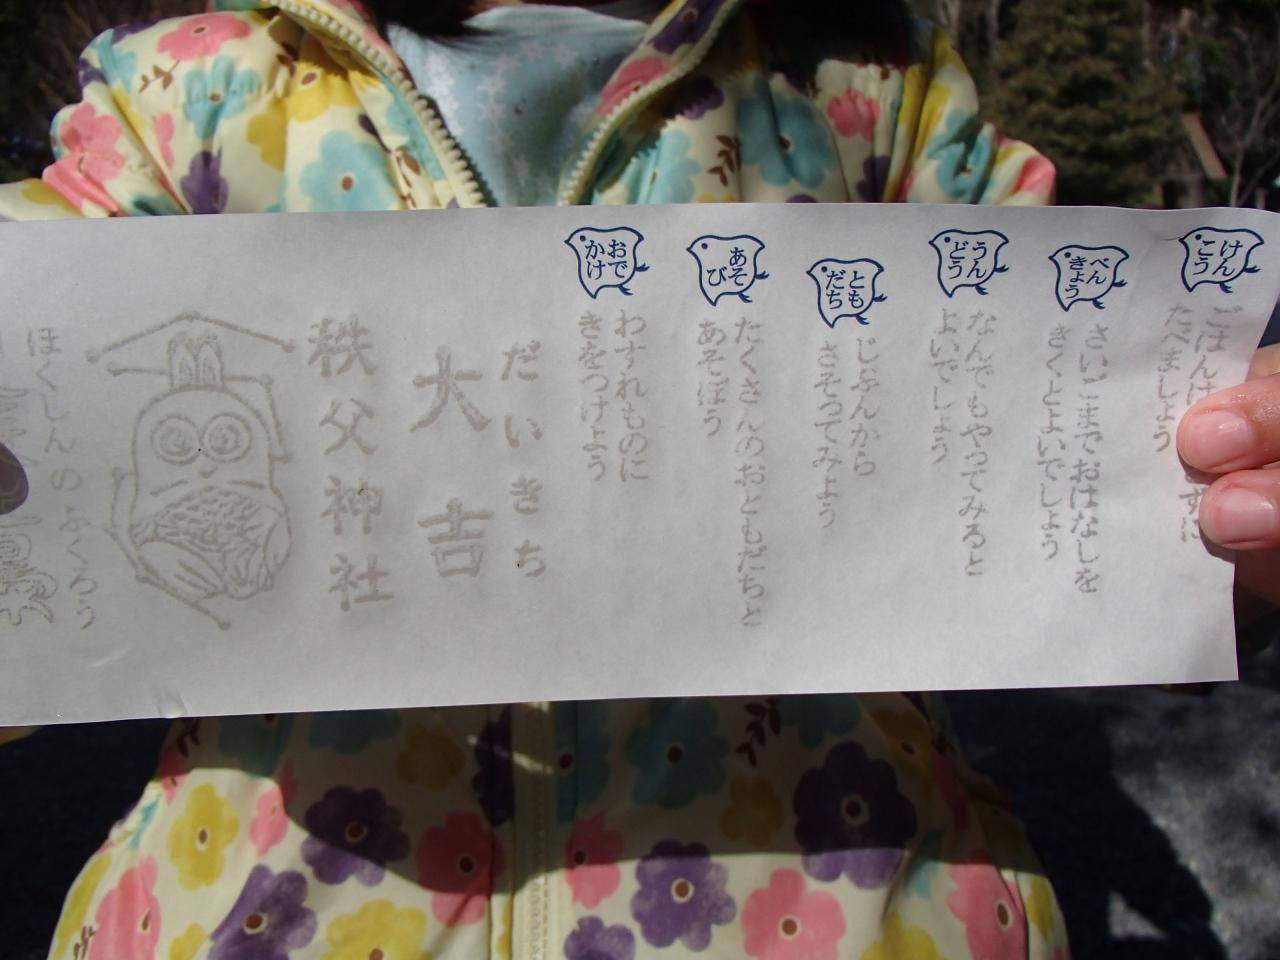 けん
こう
ごはんは
ずに
たべましょう
べん
きょう
さいごまでおはなしを
きくとよいでしょう
うん
どう
なんでもやってみると
よいでしょう
とも
だち
じぶんから
さそってみよう
あそ
び
たくさんのおともだちと
あそぼう
おで
かけ
わすれものに
きをつけよう
だいきち
大吉
秩父神社
ほくしんのふくろう